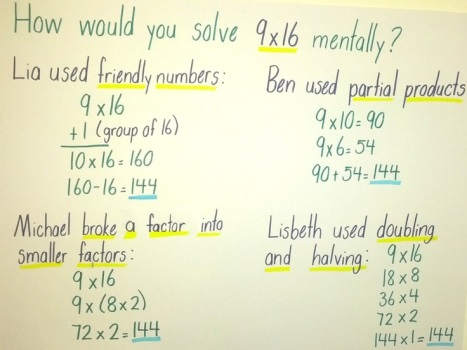 How would you solve 9x16 mentally?
Lia used friendly numbers:
9 x 16
+1 (group of 16)
10 x 16 = 160
160-16 = 144
Ben used partial products
9 x 10 = 90
9x6 = 54
90 + 54 = 144
Michael broke a factor into
smaller factors:
9 x 16
9 x (8 x 2)
72 x 2 = 144
Lisbeth used doubling
and halving: 9x16
18 x 8
36 x 4
72 x 2
144 x 1 = 144